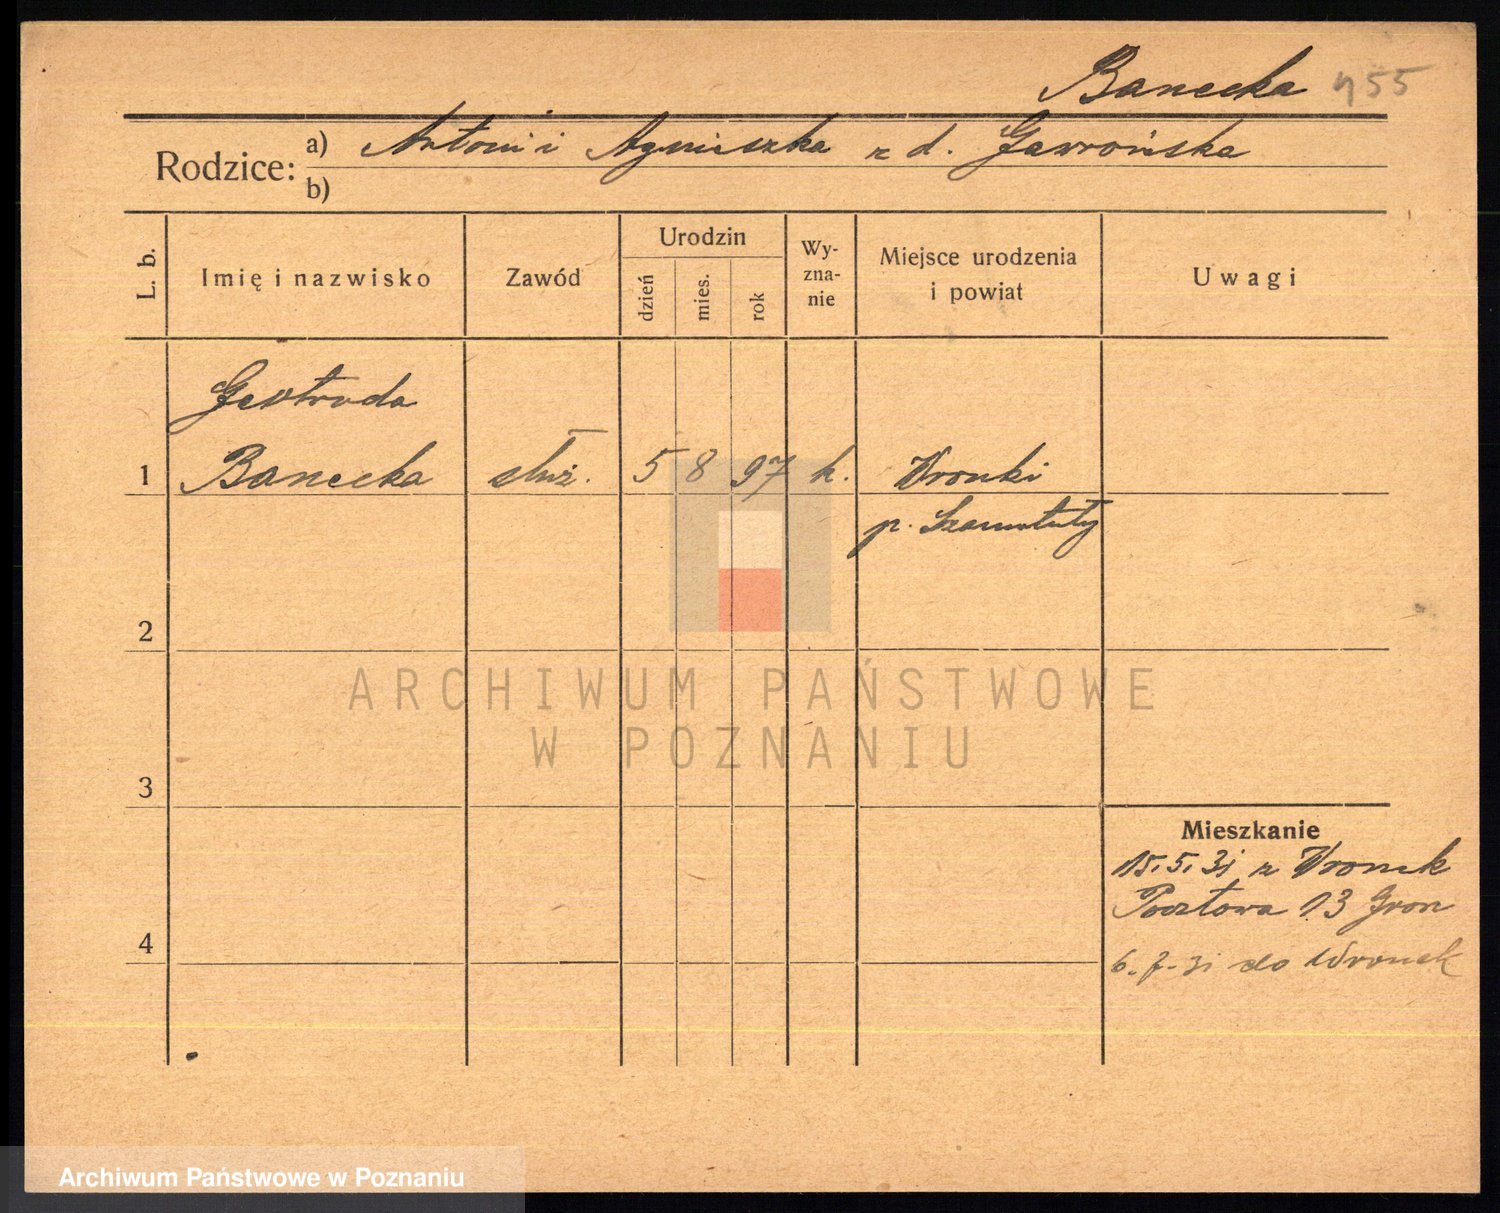 Banecka 455
Rodzice: a) Antoni i Agnieszka z d. Gawrońska
b)
L. b. Imię i nazwisko Zawód Urodzin dzień mies. rok Wy-zna-nie Miejsce urodzenia i powiat Uwagi
Gertruda
1 Banecka służ. 5 8 97 k. Wronki
p. Szamotuły
2
ARCHIWUM PAŃSTWOWE
W POZNANIU
3
Mieszkanie
15.5.31 z Wronek
Pocztowa 13
4
6.7.31 do Wronek
Archiwum Państwowe w Poznaniu